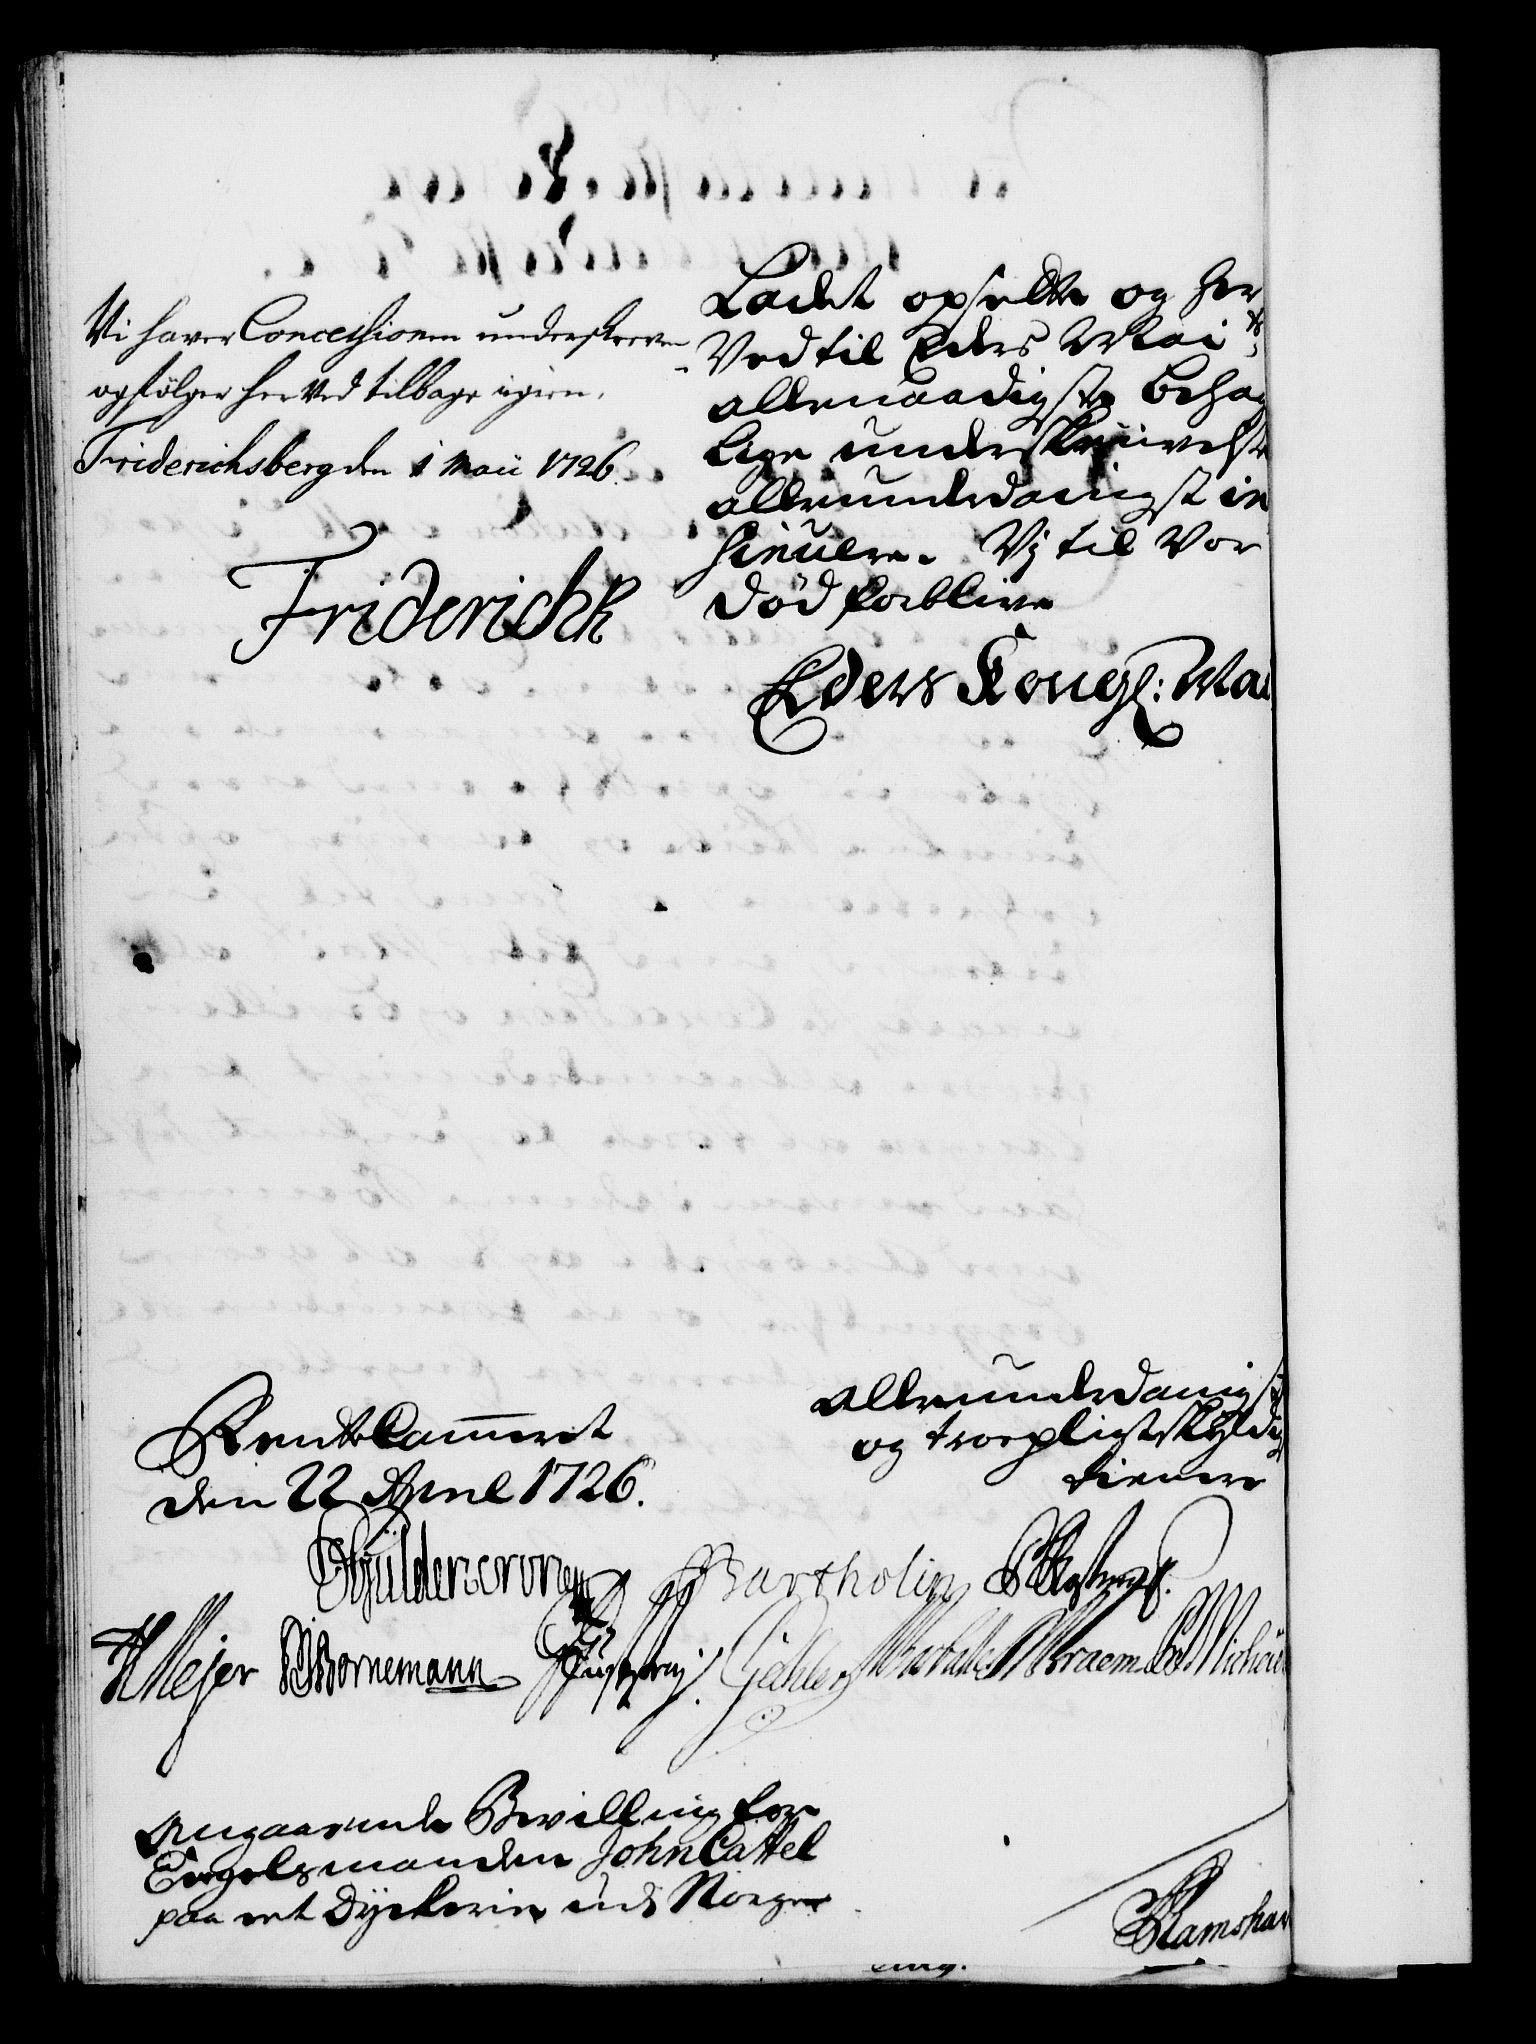 Vi haver Concessionen underskreven
og følger her Ved tilbage igien.
Friderichsberg den 1 Maii 1726.
Friderich R
Ladet opsette og her
Ved til Eders Maits
allernaadigste behag
lige underskrivelse
allerunderdanigst in
sinuere. Vj til Vor
død forblive
Eders Kongl: Mai
Allerunderdanigst
og troepligtskyldig
tienere
RenteCammeret
den 22 April 1726.
Güldencrone Bartholin
H Mejer Bornemann
Angaaende Bevilling for
Engelsmanden John Cattel
paa et Dyckerie udi Norge
Ramshar